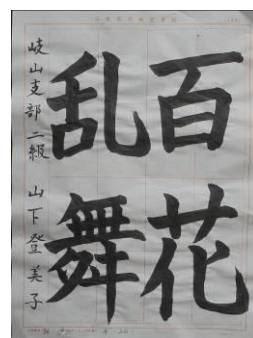 百花
乱舞
岐山支部二級 山下登美子